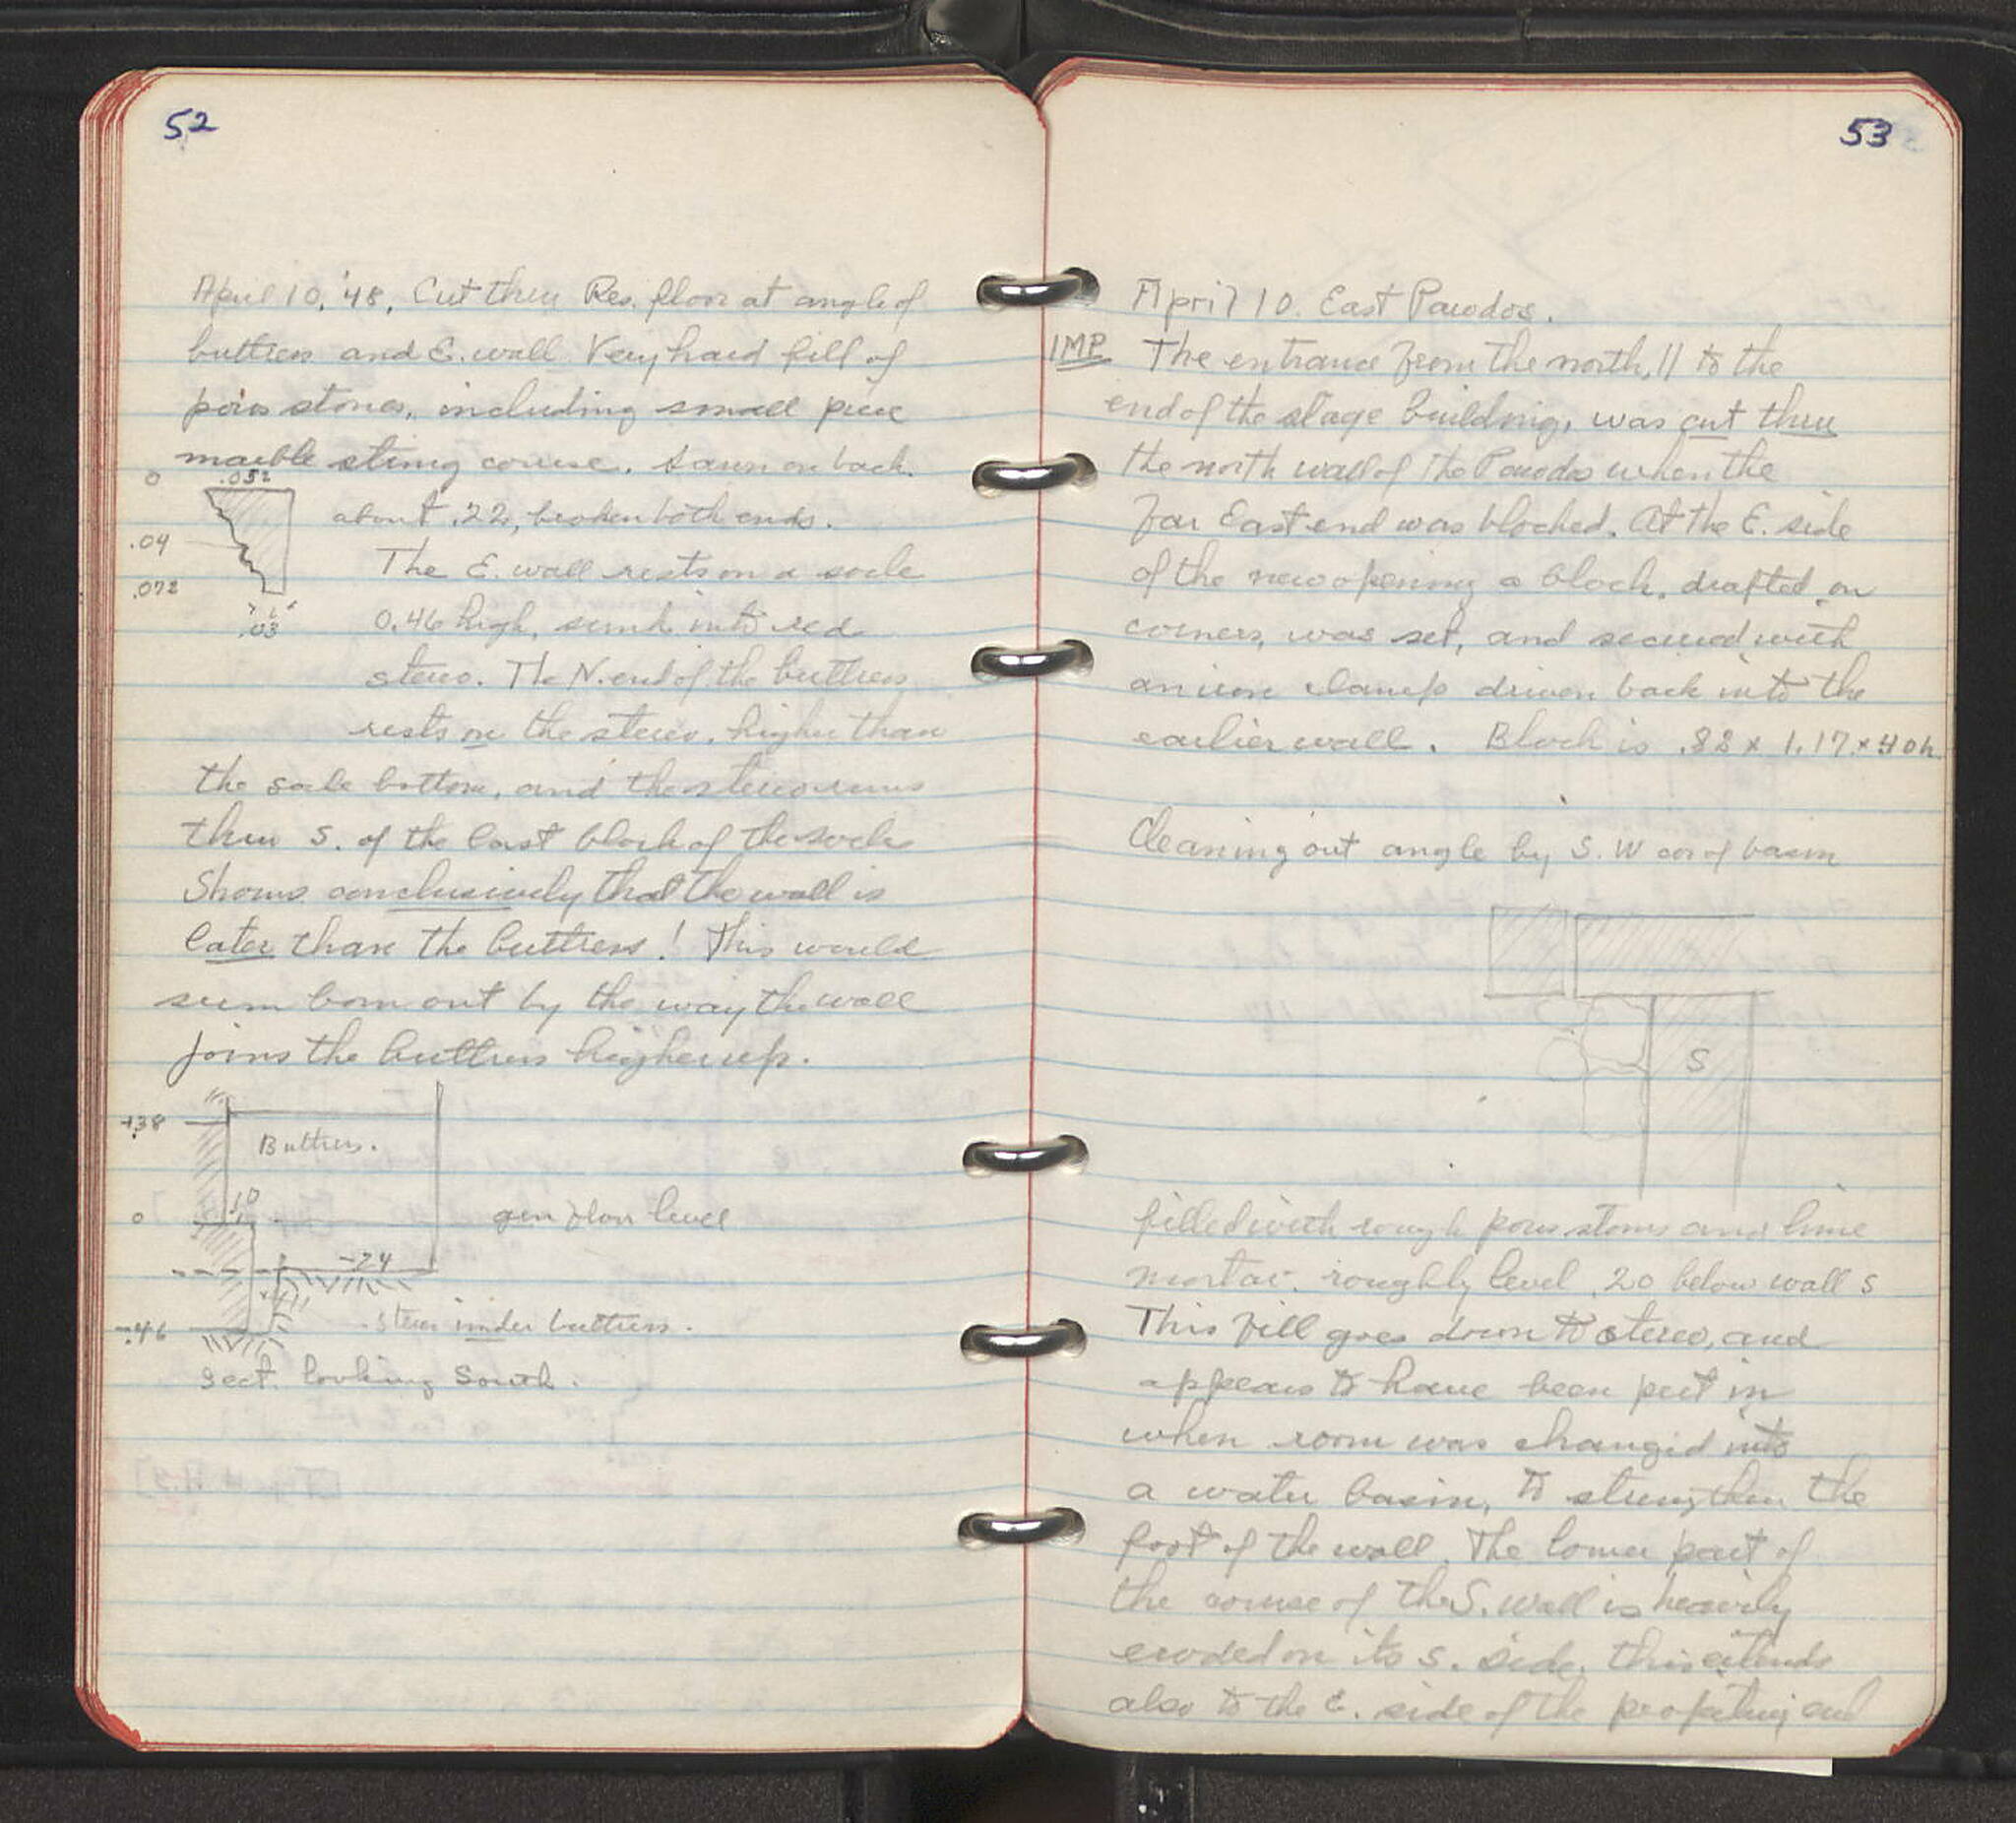 52
April 10, '48, Cut thru Res. floor at angle of
buttress and E. wall. Very hard fill of
poros stones, including small piece
marble string course. Sawn on back.
0
.052
about .22, broken both ends.
.04
The E. wall rests on a socle
.072
0.46 high, sunk into red
.03
stereo. The N. end of the buttress
rests on the stereo, higher than
the socle bottom, and the stereo runs
thru S. of the last block of the socle
Shows conclusively that the wall is
later than the buttress! This would
seem born out by the way the wall
joins the buttress higher up.
+.38
Buttress.
10
0
gen floor level
-24
stereo under buttress.
-.46
Sect. looking South.
53
April 10. East Parodos.
IMP
The entrance from the north, || to the
end of the stage building, was cut thru
the north wall of the Parodos when the
far East end was blocked. At the E. side
of the new opening a block, drafted on
corners, was set, and secured with
an iron clamp driven back into the
earlier wall. Block is .88 x 1.17 x 40h
Cleaning out angle by S.W cor of basin
S
filled with rough poros stones and lime
mortar, roughly level .20 below wall S
This fill goes down to stereo, and
appears to have been put in
when room was changed into
a water basin, to strengthen the
foot of the wall. The lower part of
the course of the S. wall is heavily
eroded on its S. side, this extends
also to the E. side of the projecting end